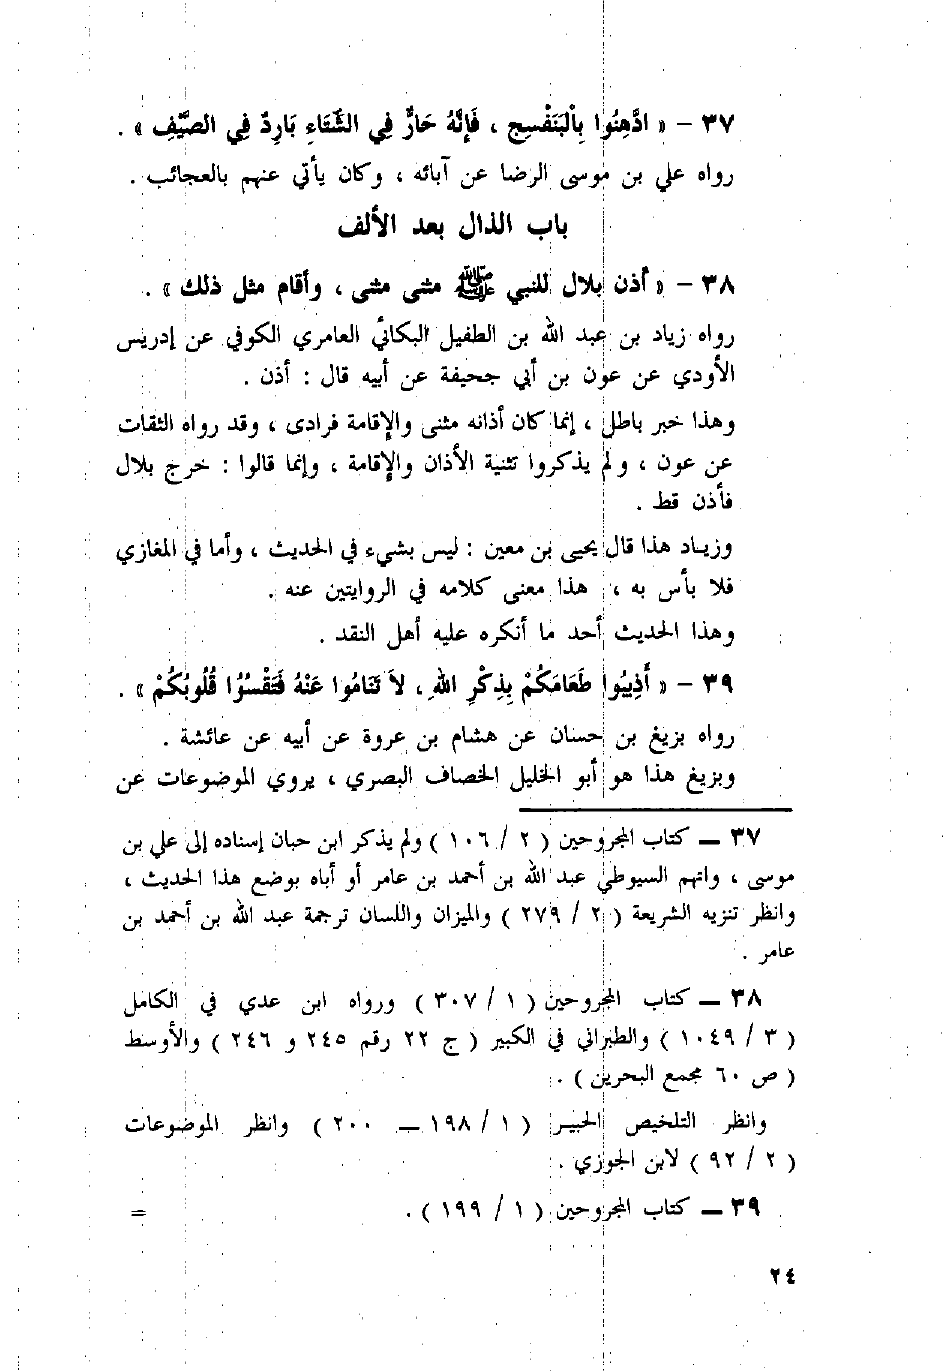 ٣٧ – « ادَّهِنُوا بِالْبَنَفْسِجِ ، فَإِنَّهُ حَارٌّ فِي الشِّتَاءِ بَارِدٌ فِي الصَّيْفِ » .
رواه علي بن موسى الرضا عن آبائه ، وكان يأتي عنهم بالعجائب .
باب الذال بعد الألف
٣٨ – « أذن بلال للنبي ﷺ مثنى مثنى ، وأقام مثل ذلك » .
رواه زياد بن عبد الله بن الطفيل البكائي العامري الكوفي عن إدريس
الأودي عن عون بن أبي جحيفة عن أبيه قال : أذن .
وهذا خبر باطل ، إنما كان أذانه مثنى والإقامة فرادى ، وقد رواه الثقات
عن عون ، ولم يذكروا تثنية الأذان والإقامة ، وإنما قالوا : خرج بلال
فأذن قط .
وزياد هذا قال يحيى بن معين : ليس بشيء في الحديث ، وأما في المغازي
فلا بأس به ، هذا معنى كلامه في الروايتين عنه .
وهذا الحديث أحد ما أنكره عليه أهل النقد .
٣٩ – « أَذِيبُوا طَعَامَكُمْ بِذِكْرِ اللهِ ، لاَ تَنَامُوا عَنْهُ فَتَقْسُوُا قُلُوبُكُمْ » .
رواه بزيغ بن حسان عن هشام بن عروة عن أبيه عن عائشة .
وبزيغ هذا هو أبو الخليل الخصاف البصري ، يروي الموضوعات عن
٣٧ — كتاب المجروحين ( ٢ / ١٠٦ ) ولم يذكر ابن حبان إسناده إلى علي بن
موسى ، واتهم السيوطي عبد الله بن أحمد بن عامر أو أباه بوضع هذا الحديث ،
وانظر تنزيه الشريعة ( ٢ / ٢٧٩ ) والميزان واللسان ترجمة عبد الله بن أحمد بن
عامر .
٣٨ — كتاب المجروحين ( ١ / ٣٠٧ ) ورواه ابن عدي في الكامل
( ٣ / ١٠٤٩ ) والطبراني في الكبير ( ج ٢٢ رقم ٢٤٥ و ٢٤٦ ) والأوسط
( ص ٦٠ مجمع البحرين ) .
وانظر التلخيص الحبير ( ١ / ١٩٨ — ٢٠٠ ) وانظر الموضوعات
( ٢ / ٩٢ ) لابن الجوزي .
٣٩ — كتاب المجروحين ( ١ / ١٩٩ ) . =
٢٤